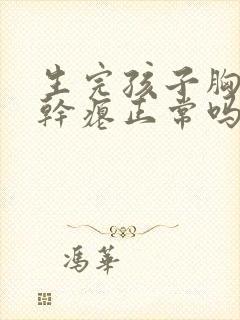 生完孩子胸
幹瘪正常吗
冯華